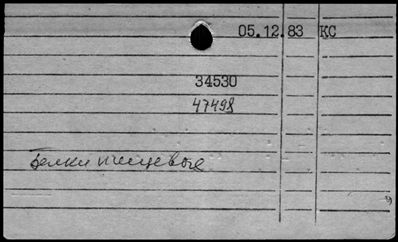 05.12.83 КС
34530
47498
Белки пищевые